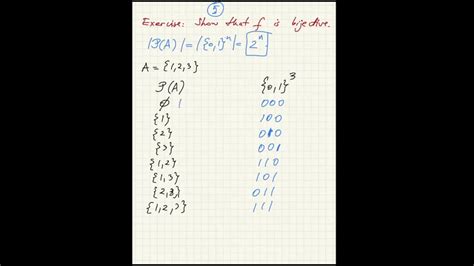 5
Exercise: Show that f is bijective.
|P(A)| = |{0,1}^n| = 2^n
A = {1,2,3}
P(A) {0,1}^3
∅ 000
{1} 100
{2} 010
{3} 001
{1,2} 110
{1,3} 101
{2,3} 011
{1,2,3} 111